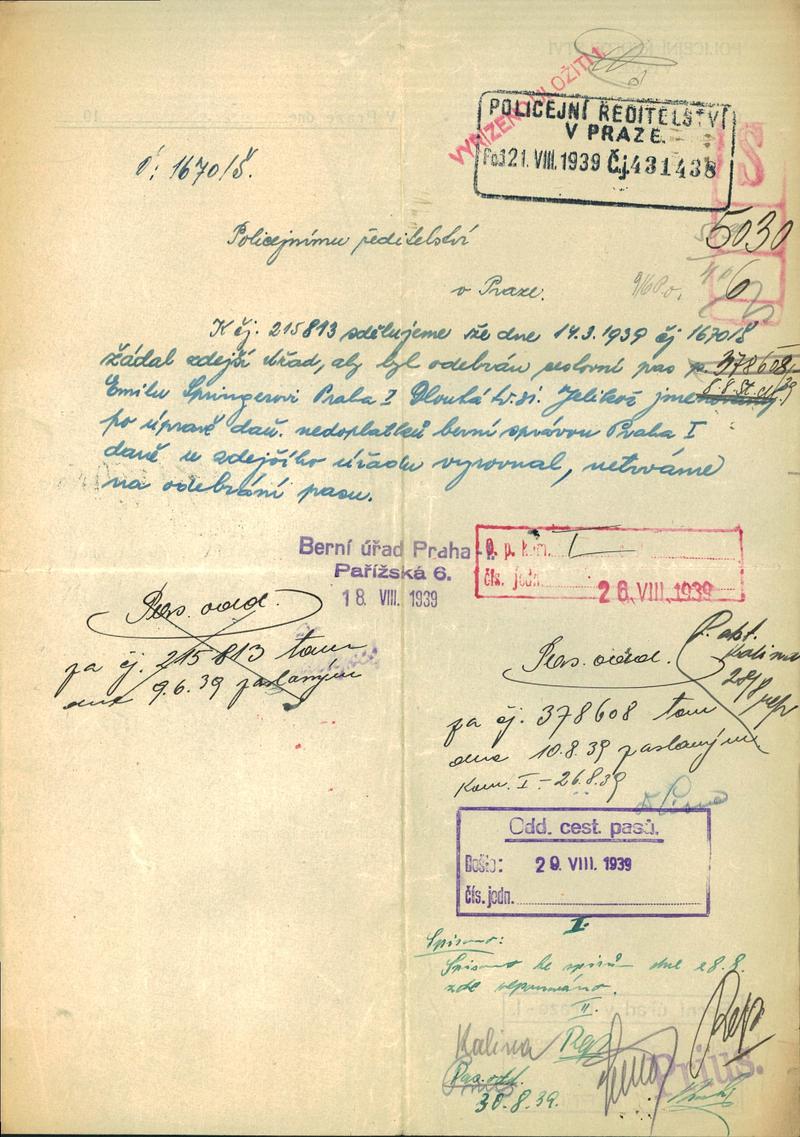 VYŘÍZENO ULOŽITI!
POLICEJNÍ ŘEDITELSTVÍ
V PRAZE.
Poš 21. VIII. 1939 Čj. 431438
Č: 1670/Š.
S
5030
6
Policejnímu ředitelství
v Praze.
K čj. 215813 sdělujeme že dne 14.3.1939 čj 1670/Š
žádal zdejší úřad, aby byl odebrán cestovní pas p. 378608/39
Emilu Springerovi Praha I Dlouhá tř. Jelikož jmenovaný
po úpravě daň. nedoplatků berní správou Praha I
daně u zdejšího úřadu vyrovnal, netrváme
na odebrání pasu.
Berní úřad Praha-I.
Pařížská 6.
18 VIII. 1939
O. p. kom. I
čís. jedn.
26. VIII. 1939
Pas. odd.
za čj. 215813 tam
dne 9.6.39 zaslaným
Kalina
Pas. odd.
za čj. 378608 tam
dne 10.8.39 zaslaným
Kom. I - 26.8.39
Odd. cest. pasů.
Došlo: 29. VIII. 1939
čís. jedn.
I.
Spisovna:
dne 28.8.
zde
II.
Kalina
Pas. odd.
30.8.39.
Prius.